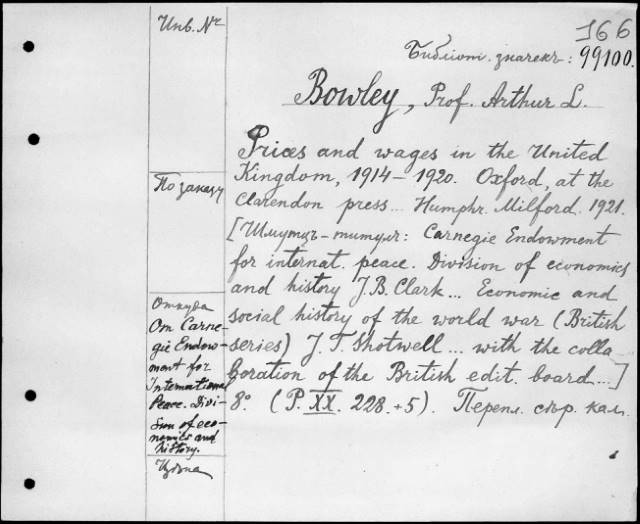 Инв. №
166
Библіот. значекъ: 99100.
Bowley, Prof. Arthur L.
Prices and wages in the United
Kingdom, 1914–1920. Oxford, at the
Clarendon press... Humphr. Milford. 1921.
[Шмутцъ-титулъ: Carnegie Endowment
for internat. peace. Division of economics
and history J.B. Clark... Economic and
social history of the world war (British
series) J. T. Shotwell... with the colla
boration of the British edit. board...]
8° (P. XX. 228.+5). Перепл. сър. кал.
По заказу
Откуда
От Carne-
gie Endow-
ment for
International
Peace. Divi-
sion of eco-
nomics and
history.
Цѣна